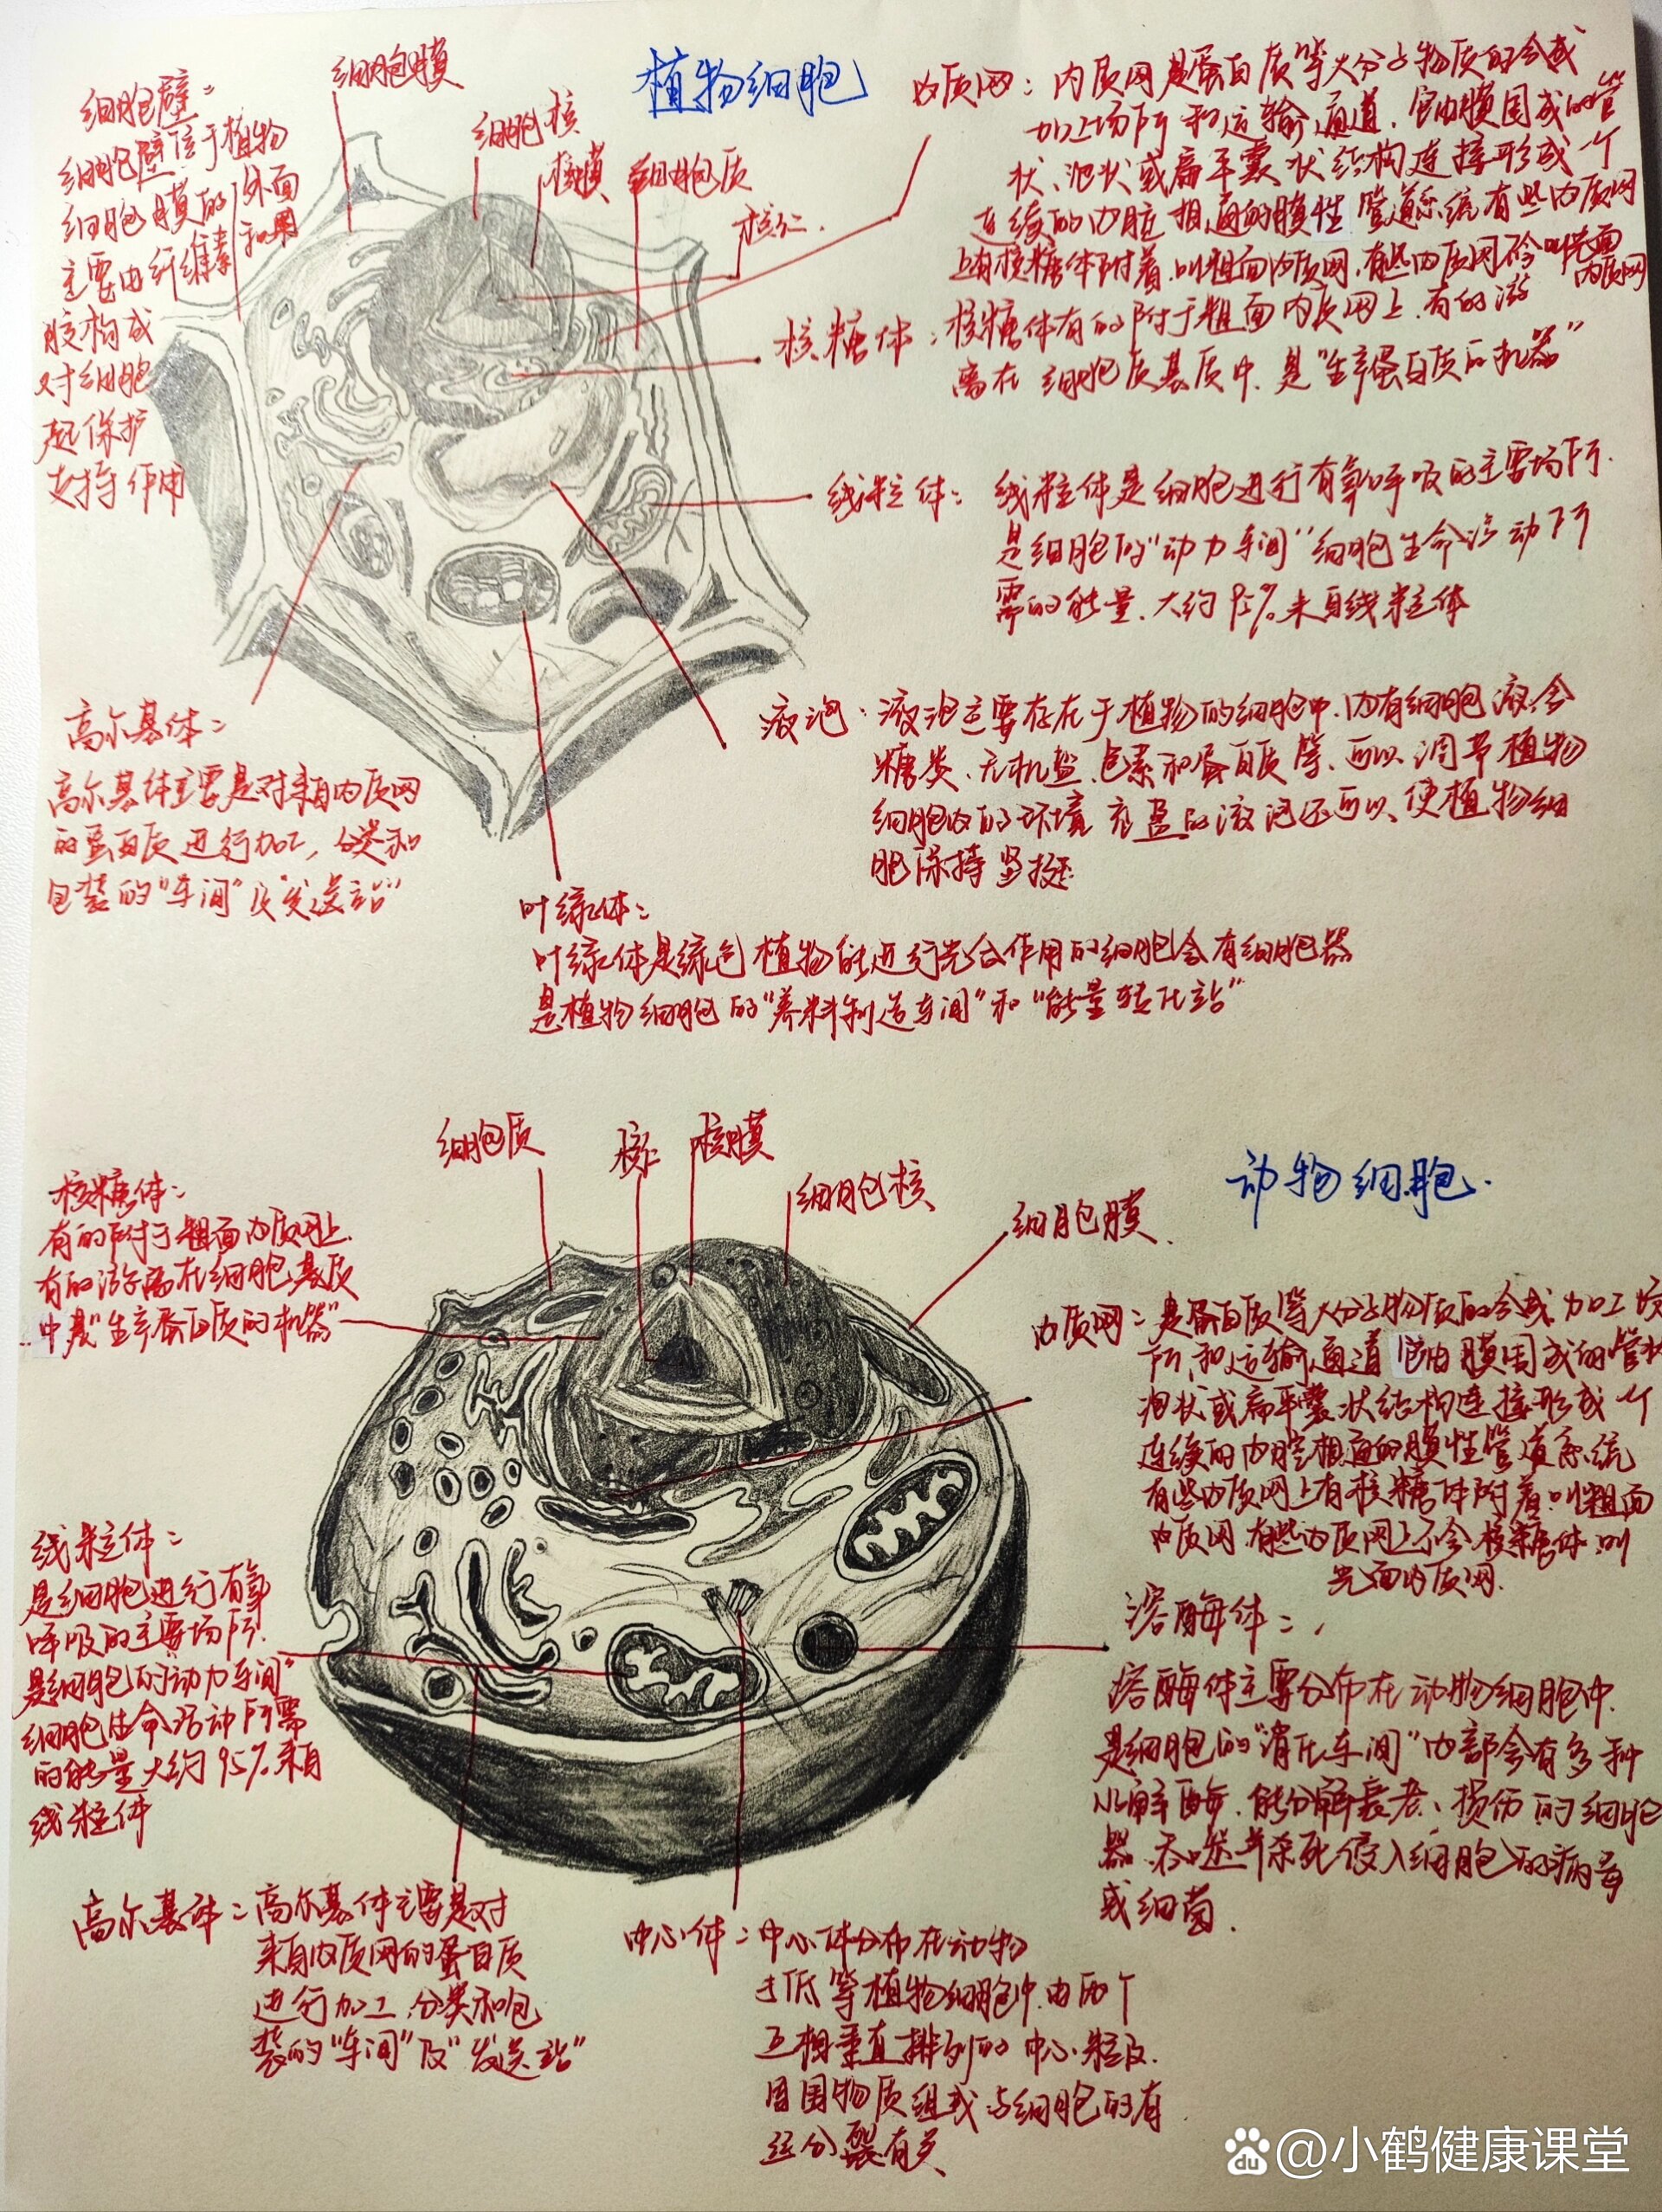 植物细胞
细胞壁：
细胞壁位于植物
细胞膜的外面
主要由纤维素和果
胶构成
对细胞
起保护
支持作用
细胞膜
细胞核
核膜
细胞质
核仁.
内质网：内质网是蛋白质等大分子物质的合成
加工场所和运输通道.它由膜围成的管
状、泡状或扁平囊状结构连接形成一个
连续的内腔相通的膜性管道系统有些内质网
上有核糖体附着.叫粗面内质网.有些内质网不含叫光面
内质网
核糖体：核糖体有的附于粗面内质网上.有的游
离在细胞质基质中.是“生产蛋白质的机器”
线粒体：线粒体是细胞进行有氧呼吸的主要场所.
是细胞的“动力车间”细胞生命活动所
需的能量.大约95%来自线粒体
液泡：液泡主要存在于植物的细胞中.内有细胞液含
糖类、无机盐、色素和蛋白质等、可以调节植物
细胞内的环境充盈的液泡还可以使植物细
胞保持坚挺
高尔基体：
高尔基体主要是对来自内质网
的蛋白质进行加工，分类和
包装的“车间”及“发送站”
叶绿体：
叶绿体是绿色植物能进行光合作用的细胞含有细胞器
是植物细胞的“养料制造车间”和“能量转化站”
动物细胞.
细胞质
核仁
核膜
细胞核
细胞膜.
核糖体：
有的附于粗面内质网上.
有的游离在细胞基质
中是“生产蛋白质的机器”
内质网：是蛋白质等大分子物质的合成加工场
所和运输通道它由膜围成的管状
泡状或扁平囊状结构连接形成一个
连续的内腔相通的膜性管道系统
有些内质网上有核糖体附着.叫粗面
内质网.有些内质网上不含核糖体.叫
光面内质网.
线粒体：
是细胞进行有氧
呼吸的主要场所.
是细胞的动力车间”
细胞生命活动所需
的能量大约95%来自
线粒体
溶酶体：
溶酶体主要分布在动物细胞中.
是细胞的“消化车间”内部含有多种
水解酶.能分解衰老、损伤的细胞
器.吞噬并杀死侵入细胞的病毒
或细菌.
高尔基体：高尔基体主要是对
来自内质网的蛋白质
进行加工.分类和包
装的“车间”及“发送站”
中心体：中心体分布在动物
与低等植物细胞中.由两个
互相垂直排列的中心粒及
周围物质组成与细胞的有
丝分裂有关
Bai du @小鹤健康课堂